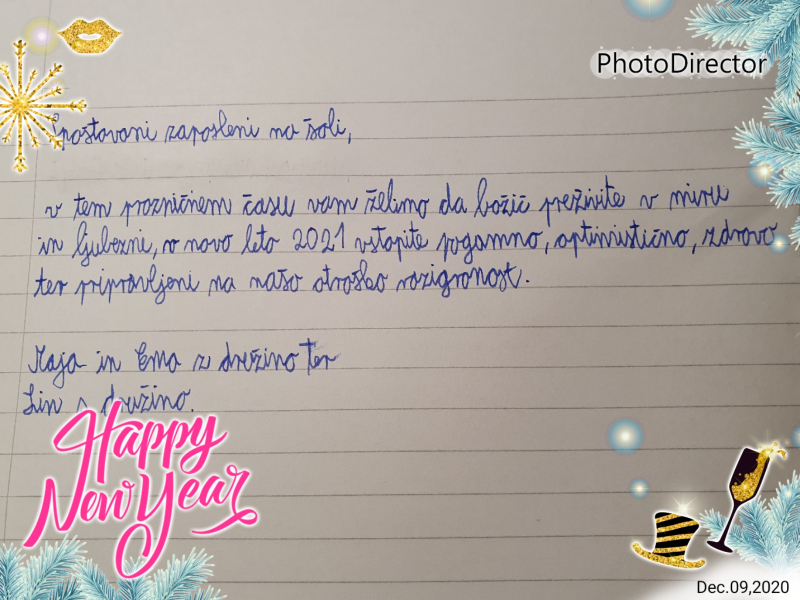 PhotoDirector
Spostovani zaposleni na šoli,
v tem prazničnem času vam želimo da božič preživite v miru
in ljubezni, v novo leto 2021 vstopite pogumno, optimistično, zdravo
ter pripravljeni na našo otroško razigranost.
Maja in Ema z družino ter
Lin z družino.
Happy
New Year
Dec.09,2020